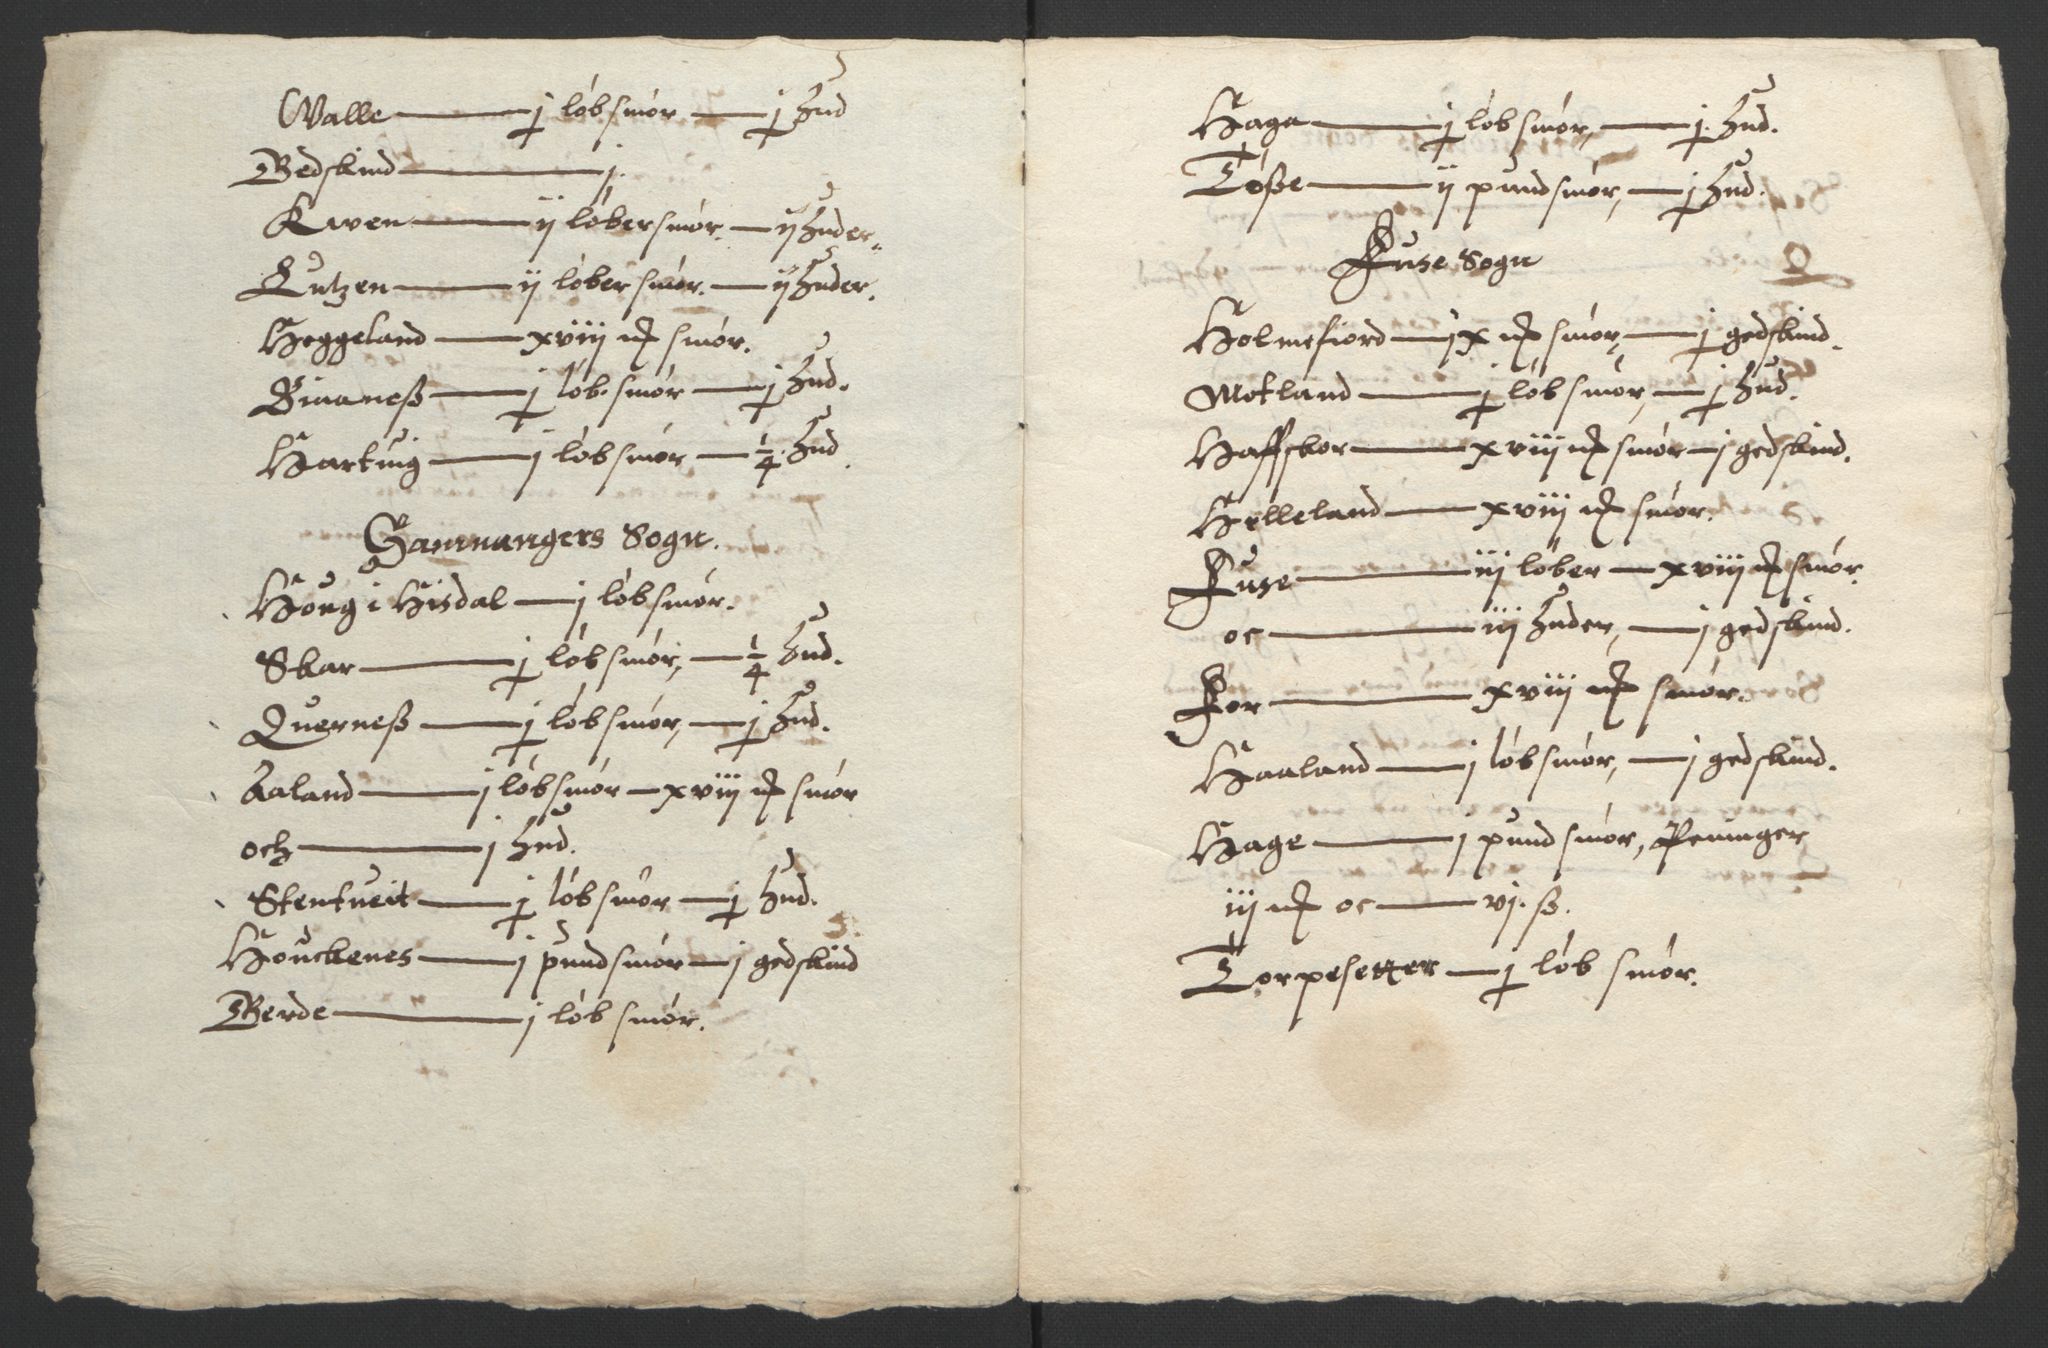 Walle — j løbsmør — j Hud
Gedskind — j.
Kwen — ij løbersmør. — ij Huder.
Lutzen — ij løber smør. — ij Huder.
Heggeland — xviij m̶ smør.
Binaness — j løb. smør — j Hud.
Hartuig — j løbsmør — 1/4 Hud
Samnangers Sogn.
Houg i Hisdal — j løbsmør.
Skar — j løbsmør, — 1/4 Hud.
Querness — j løbsmør, — j Hud.
Aaland — j løbsmør — xviij m̶ smør
och — j Hud.
Stentueit — j løbsmør — j Hud.
Houckenes — j pundsmør — j gedskind
Gerde — j løb smør.
Haga — j løb smør, — j. Hud.
Tøsse — ij pundsmør, — j Hud.
Fuse Sogn
Holmefiord — ix m̶ smør, — j gedskind.
Motland — j løb smør, — j Hud.
Haffskor — xviij m̶ smør — j gedskind.
Helleland — xviij m̶ smør.
Fuse — iij løber — xviij m̶ smør.
oc — iij Huder, — j gedskind.
For — xviij m̶ smør.
Haaland — j løbsmør, — j gedskind.
Hage — j pund smør, Peninger
iij m̶ oc — vj. ß.
Torpesetter — j løb smør.